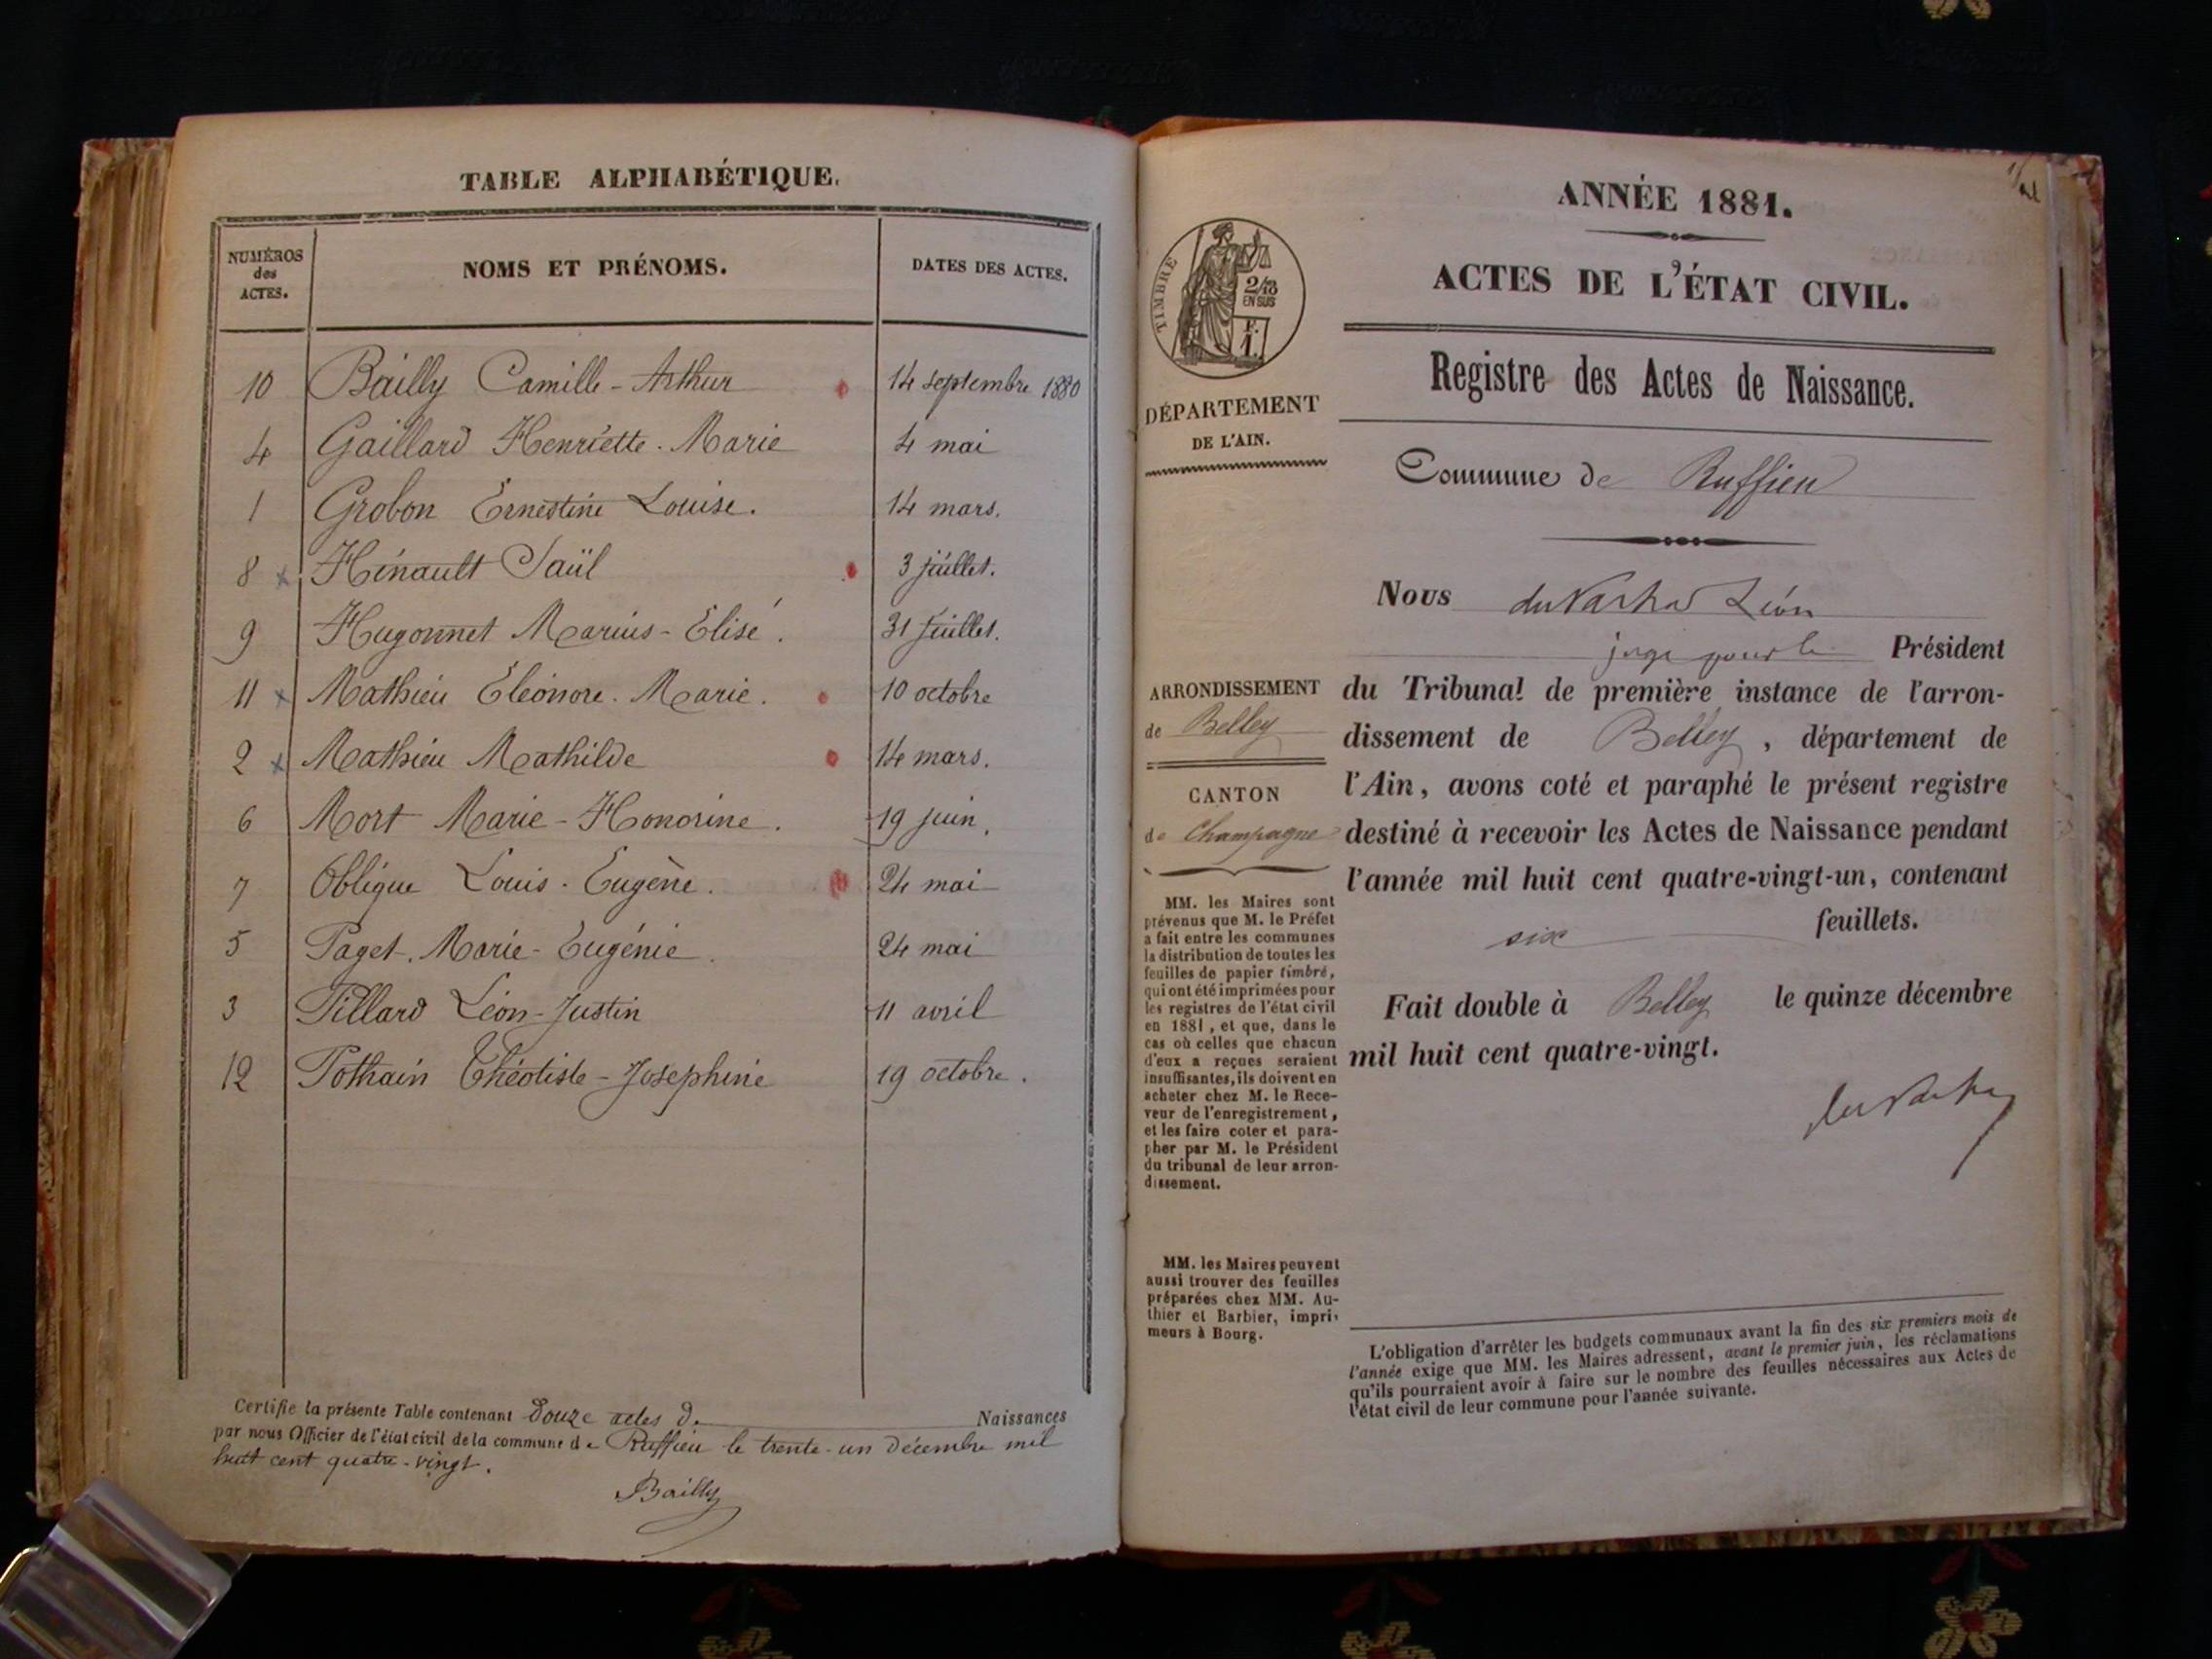 TABLE ALPHABÉTIQUE.
NUMÉROS des ACTES. NOMS ET PRÉNOMS. DATES DES ACTES.
10 Bailly Camille-Arthur 14 septembre 1880
4 Gaillard Henriette-Marie 4 mai
1 Grobon Ernestine Louise. 14 mars.
8 x Hénault Saül 3 juillet.
9 Hugonnet Marius-Elisé. 31 juillet.
11 x Mathieu Eléonore-Marie. 10 octobre
2 x Mathieu Mathilde 14 mars.
6 Mort Marie-Honorine. 19 juin.
7 Oblique Louis-Eugène. 24 mai
5 Paget Marie-Eugénie. 24 mai
3 Pillard Léon-Justin 11 avril
12 Pothain Théotiste-Josephine 19 octobre.
Certifie la présente Table contenant Douze actes de Naissances
par nous Officier de l'état civil de la commune de Ruffieu le trente-un Décembre mil
huit cent quatre-vingt.
Bailly
ANNÉE 1881.
ACTES DE L'ÉTAT CIVIL.
Registre des Actes de Naissance.
TIMBRE
2/10
EN SUS
F.
1.
DÉPARTEMENT
DE L'AIN.
Commune de Ruffieu
Nous Léon
juge pour le Président
du Tribunal de première instance de l'arron-
dissement de Belley, département de
l'Ain, avons coté et paraphé le présent registre
destiné à recevoir les Actes de Naissance pendant
l'année mil huit cent quatre-vingt-un, contenant
six feuillets.
Fait double à Belley le quinze décembre
mil huit cent quatre-vingt.
ARRONDISSEMENT
de Belley
CANTON
de Champagne
MM. les Maires sont
prévenus que M. le Préfet
a fait entre les communes
la distribution de toutes les
feuilles de papier timbré,
qui ont été imprimées pour
les registres de l'état civil
en 1881, et que, dans le
cas où celles que chacun
d'eux a reçues seraient
insuffisantes, ils doivent en
acheter chez M. le Rece-
veur de l'enregistrement,
et les faire coter et para-
pher par M. le Président
du tribunal de leur arron-
dissement.
MM. les Maires peuvent
aussi trouver des feuilles
préparées chez MM. Au-
thier et Barbier, impri-
meurs à Bourg.
L'obligation d'arrêter les budgets communaux avant la fin des six premiers mois de
l'année exige que MM. les Maires adressent, avant le premier juin, les réclamations
qu'ils pourraient avoir à faire sur le nombre des feuilles nécessaires aux Actes de
l'état civil de leur commune pour l'année suivante.